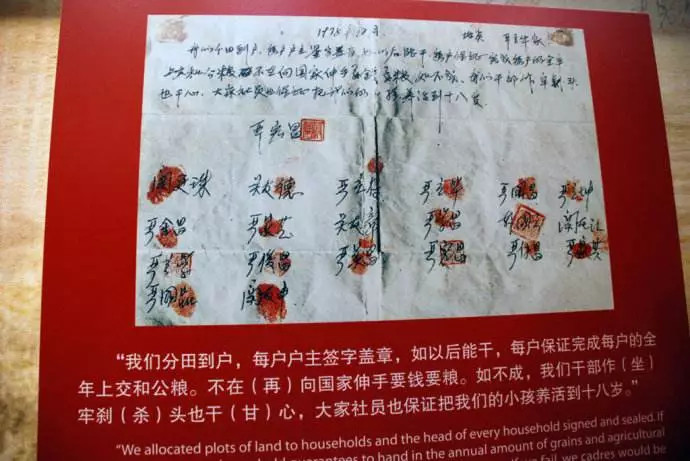 地点 严立华家
我们分田到户,每户户主签字盖章,如以后能干,每户保证完成每户的全年
上交和公粮。不在向国家伸手要钱要粮。如不成,我们干部作牢刹头
也干心,大家社员也保证把我们的小孩养活到十八岁。
严宏昌
关廷珠 关友德 严立符 严立华 严国昌 严立坤
严金昌 严家芝 关友章 严学昌 韩国云 关友江
严立学 严俊昌 严美昌 严宏昌 严付昌 严家其
严国品 关友申
“我们分田到户,每户户主签字盖章,如以后能干,每户保证完成每户的全
年上交和公粮。不在(再)向国家伸手要钱要粮。如不成,我们干部作(坐)
牢刹(杀)头也干(甘)心,大家社员也保证把我们的小孩养活到十八岁。”
"We allocated plots of land to households and the head of every household signed and sealed. If
guarantees to hand in the annual amount of grains and agricultural
If we fail, we cadres would be